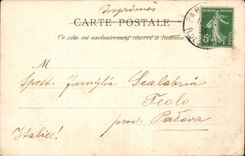 Imprimés
CARTE POSTALE
Ce côté est exclusivement réservé à l'adresse
M
Spett. famiglia Scalabrin
Teolo
prov. Padova
(Italie)
5